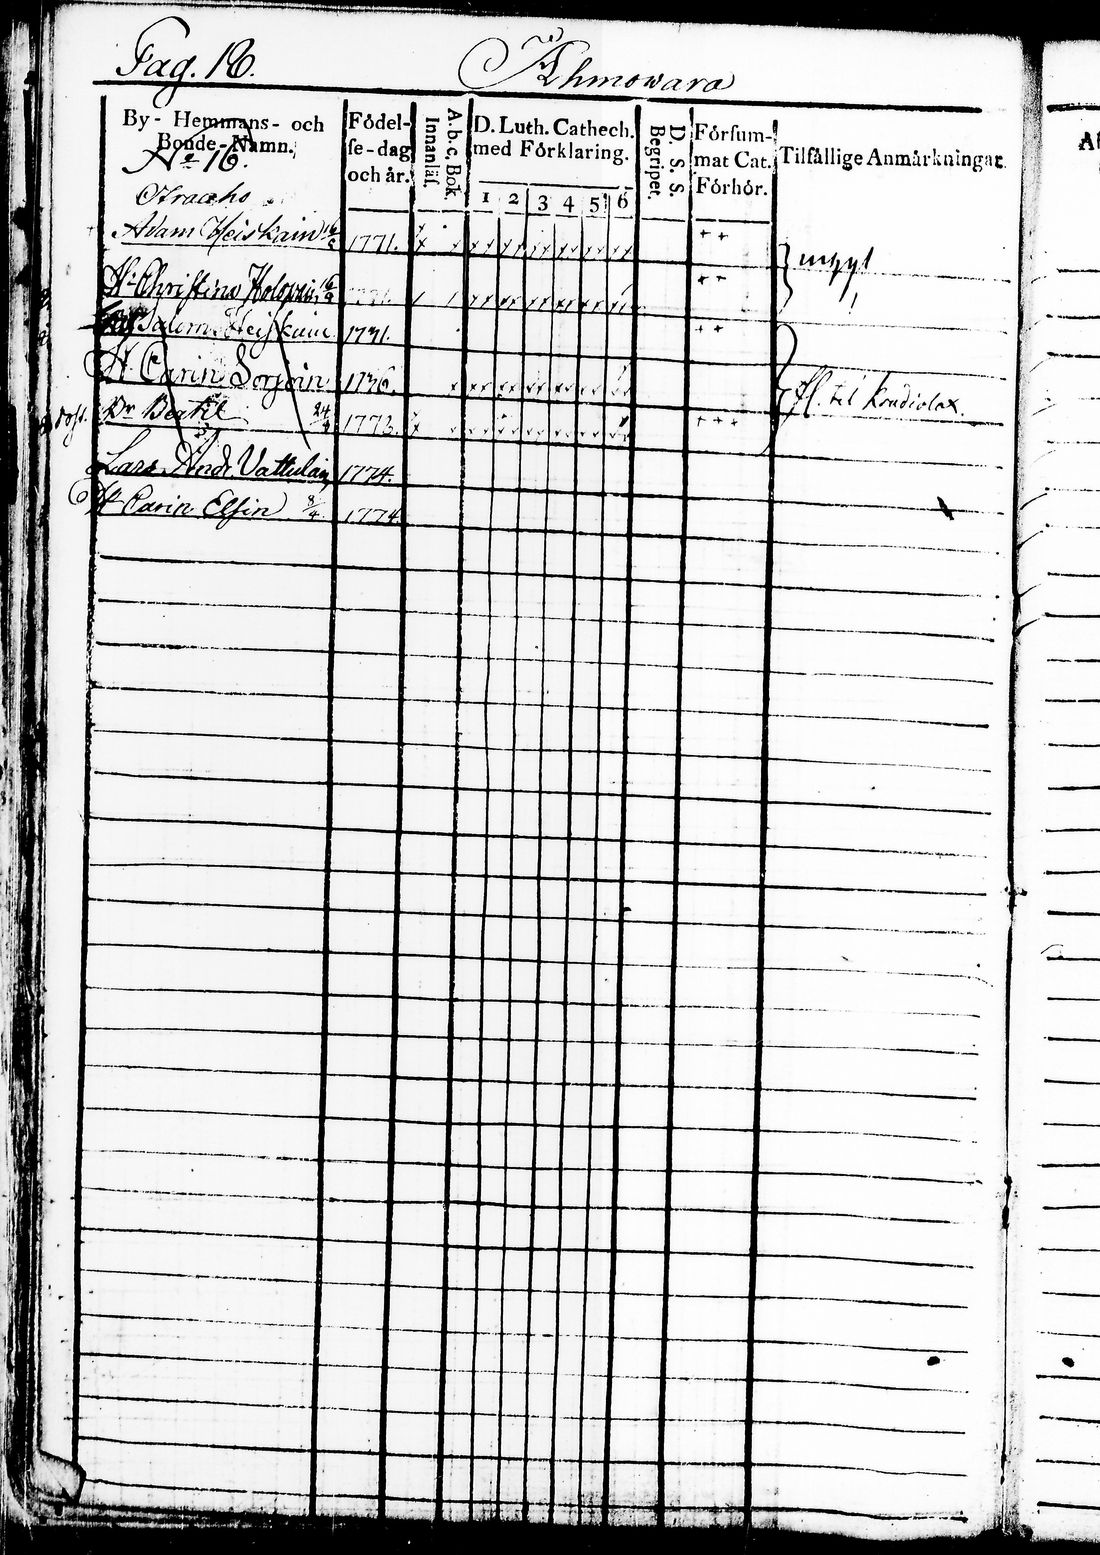 Pag. 16. Ahmowara
By- Hemmans- och Bonde-Namn.
Födel-se-dag och år.
Innanläs.
A.b.c. Bok.
D. Luth. Cathech. med Förklaring.
1 2 3 4 5 6
D. S. S. Begripet.
Försum-mat Cat. Förhör.
Tilfällige Anmärkningar.
No 16.
Adam Heiskain 1771. ++
H. Christina Holopain 16/9 ++
Salom. Heiskain 1731. ++
H. Carin Sorjoin 1736. fl. til Kondiolax.
Dr Bertil 24/4 1773. +++
Lars Andr. Vattulain 1774.
H. Carin Elfin 8/4 1774